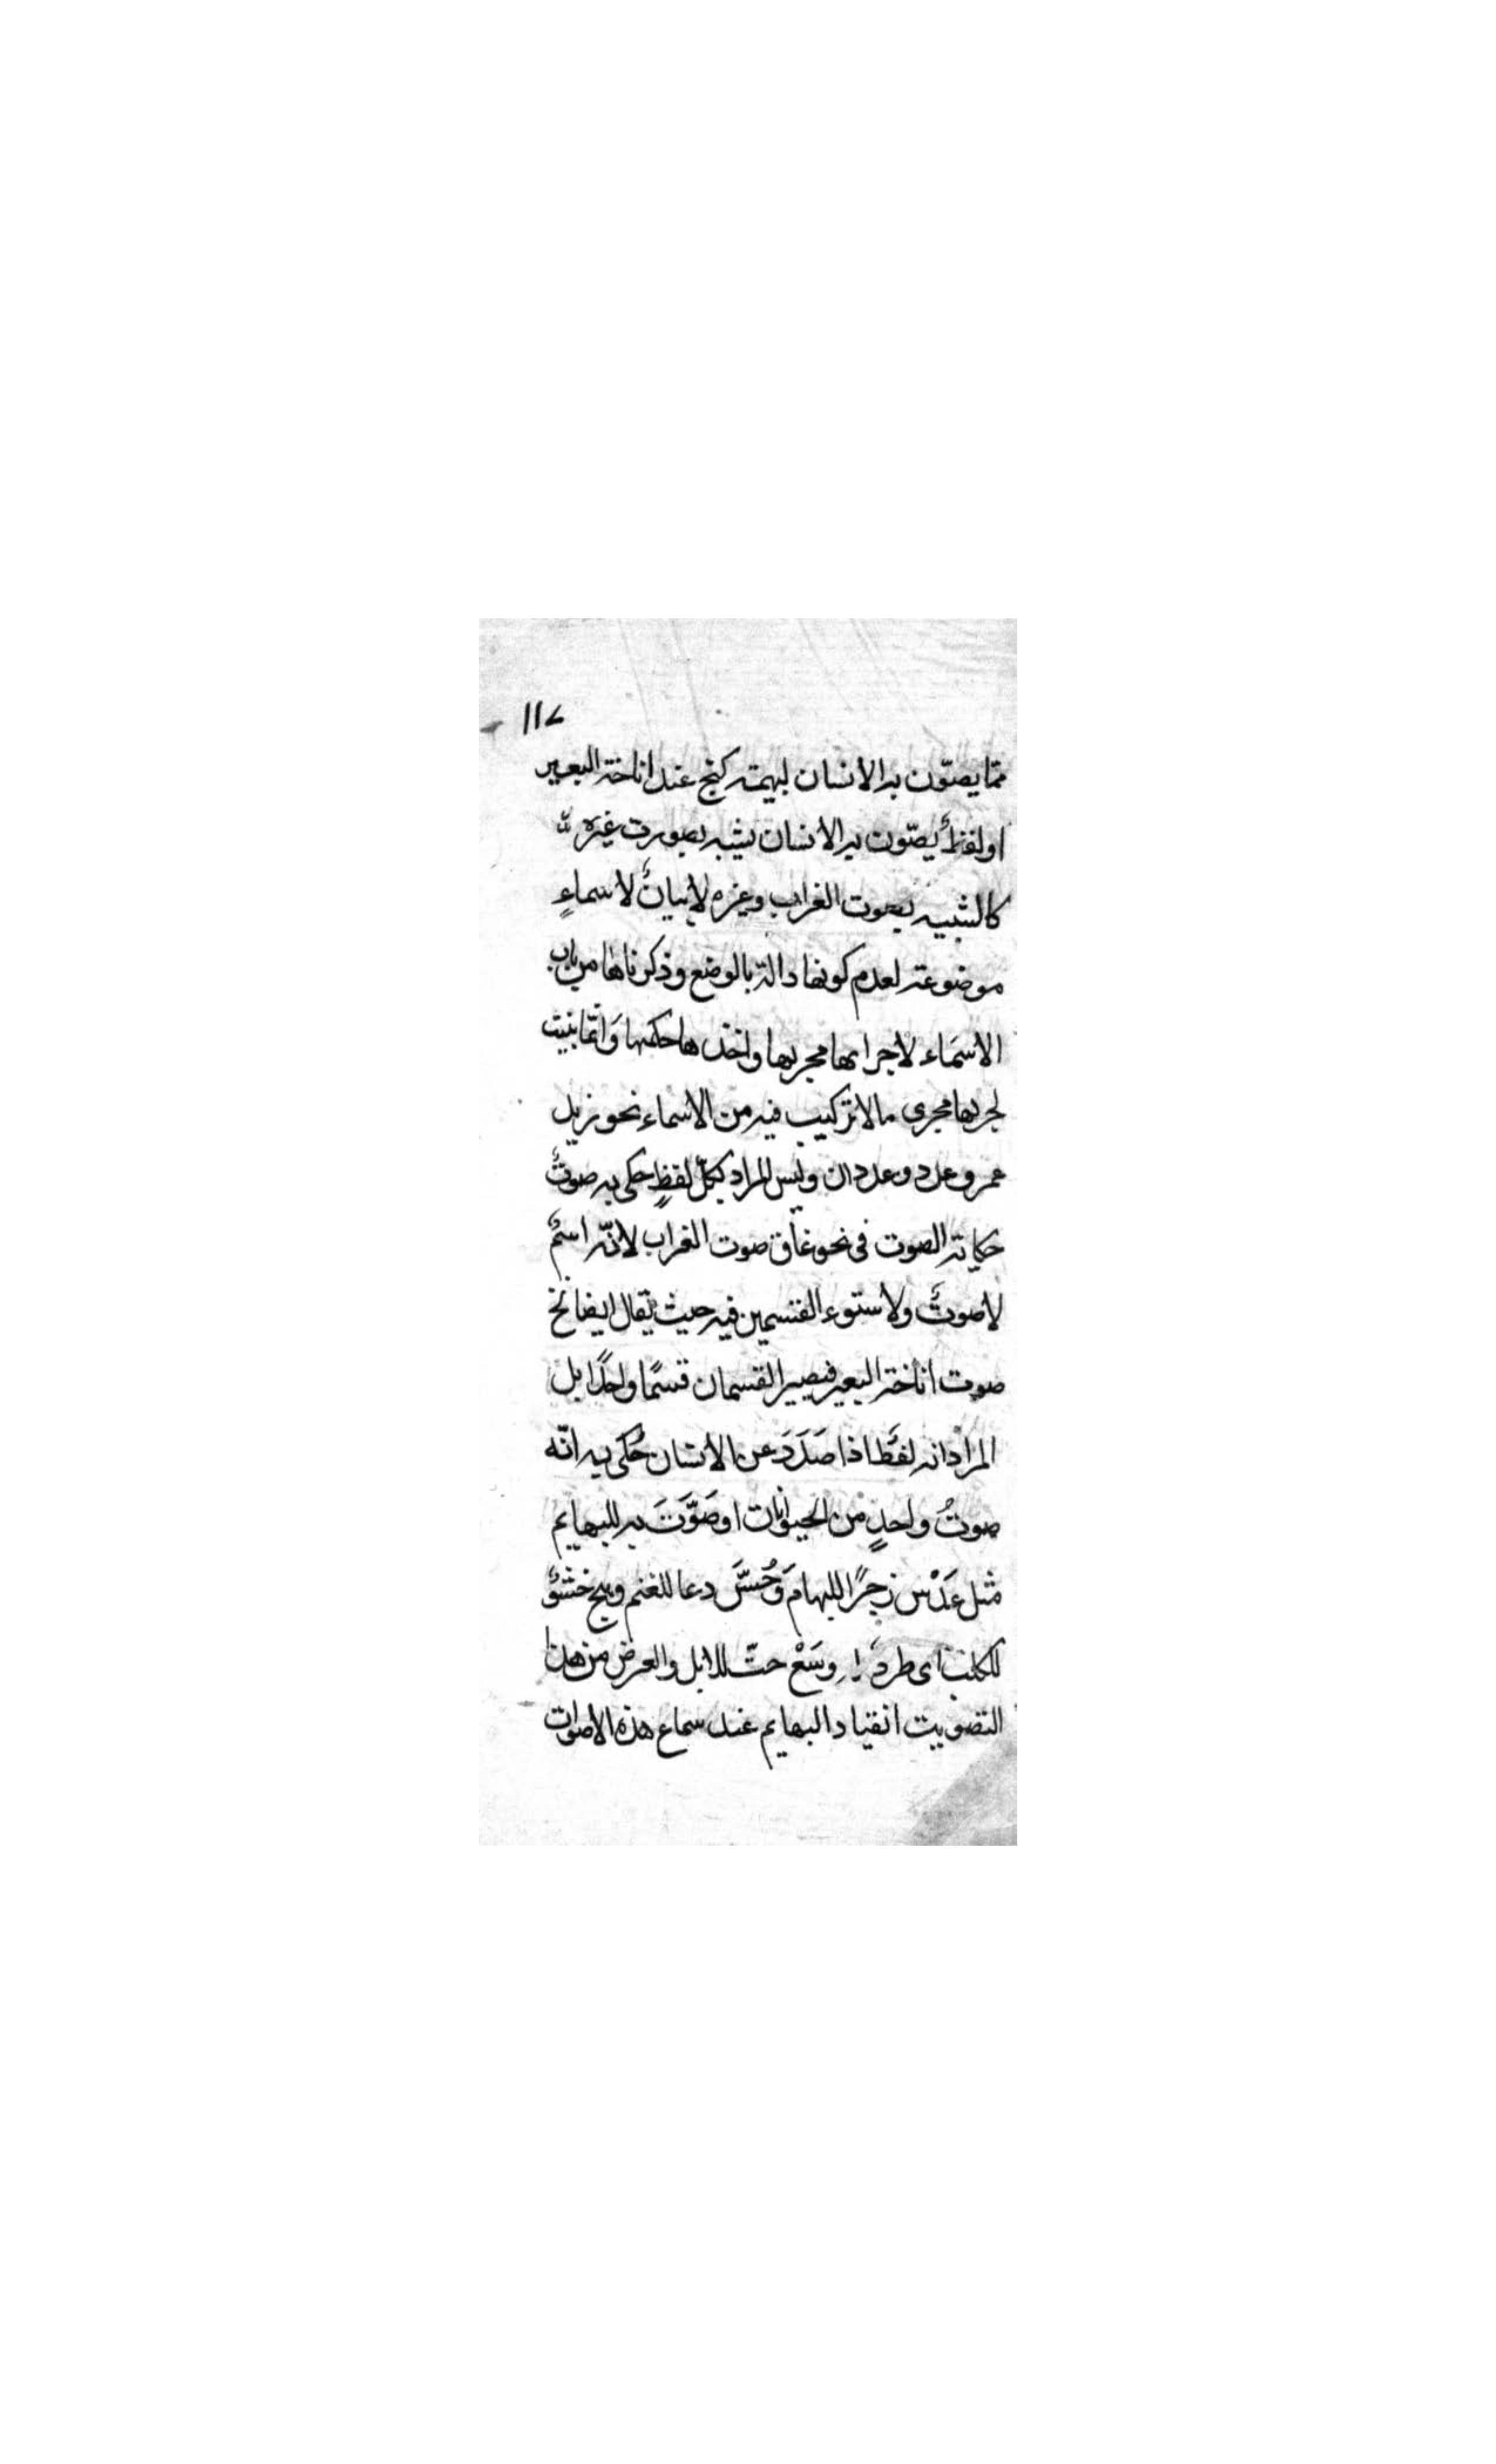 ١١٧
مما يصوّت به الانسان لبهيمته كنخ عند اناخته البعير
او لفظٌ يصوّت به الانسان يشبه بصوت غيره
كالشبيه بصوت الغراب وغيره لابيانٌ لاسماءٍ
موضوعته لعدم كونها دالة بالوضع وذكرناها من باب
الاسمَاء لاجرائها مجريها واخذها حكمها وَانّما بنيت
لجريها مجرى مالا تركيب فيه من الاسماء نحو زيد
عمرو عدد وعددان وليس المراد بكلّ لفظٍ حكى به صوتٌ
حكاية الصوت فى نحو غاق صوت الغراب لانّه اسمٌ
لا صوتٌ ولا ستوء القسمين فيه حيث يقال ايضا نخ
صوت اناخته البعير فيصير القسمان قسمًا واحدًا بل
المراد انه لفَظ اذا صَدَدَ عن الانسان حُكى به انّه
صوتُ واحدٍ من الحيوانات او صَوَّتَ به للبهايم
مثل عَدَسْ زجرًا للبهام وَحُسَّ دعا للغنم
للكلب اى طرد وسَعْ حتّ للابل والعرض من هذا
التصويت انقياد البهايم عند سماع هذه الاصوات